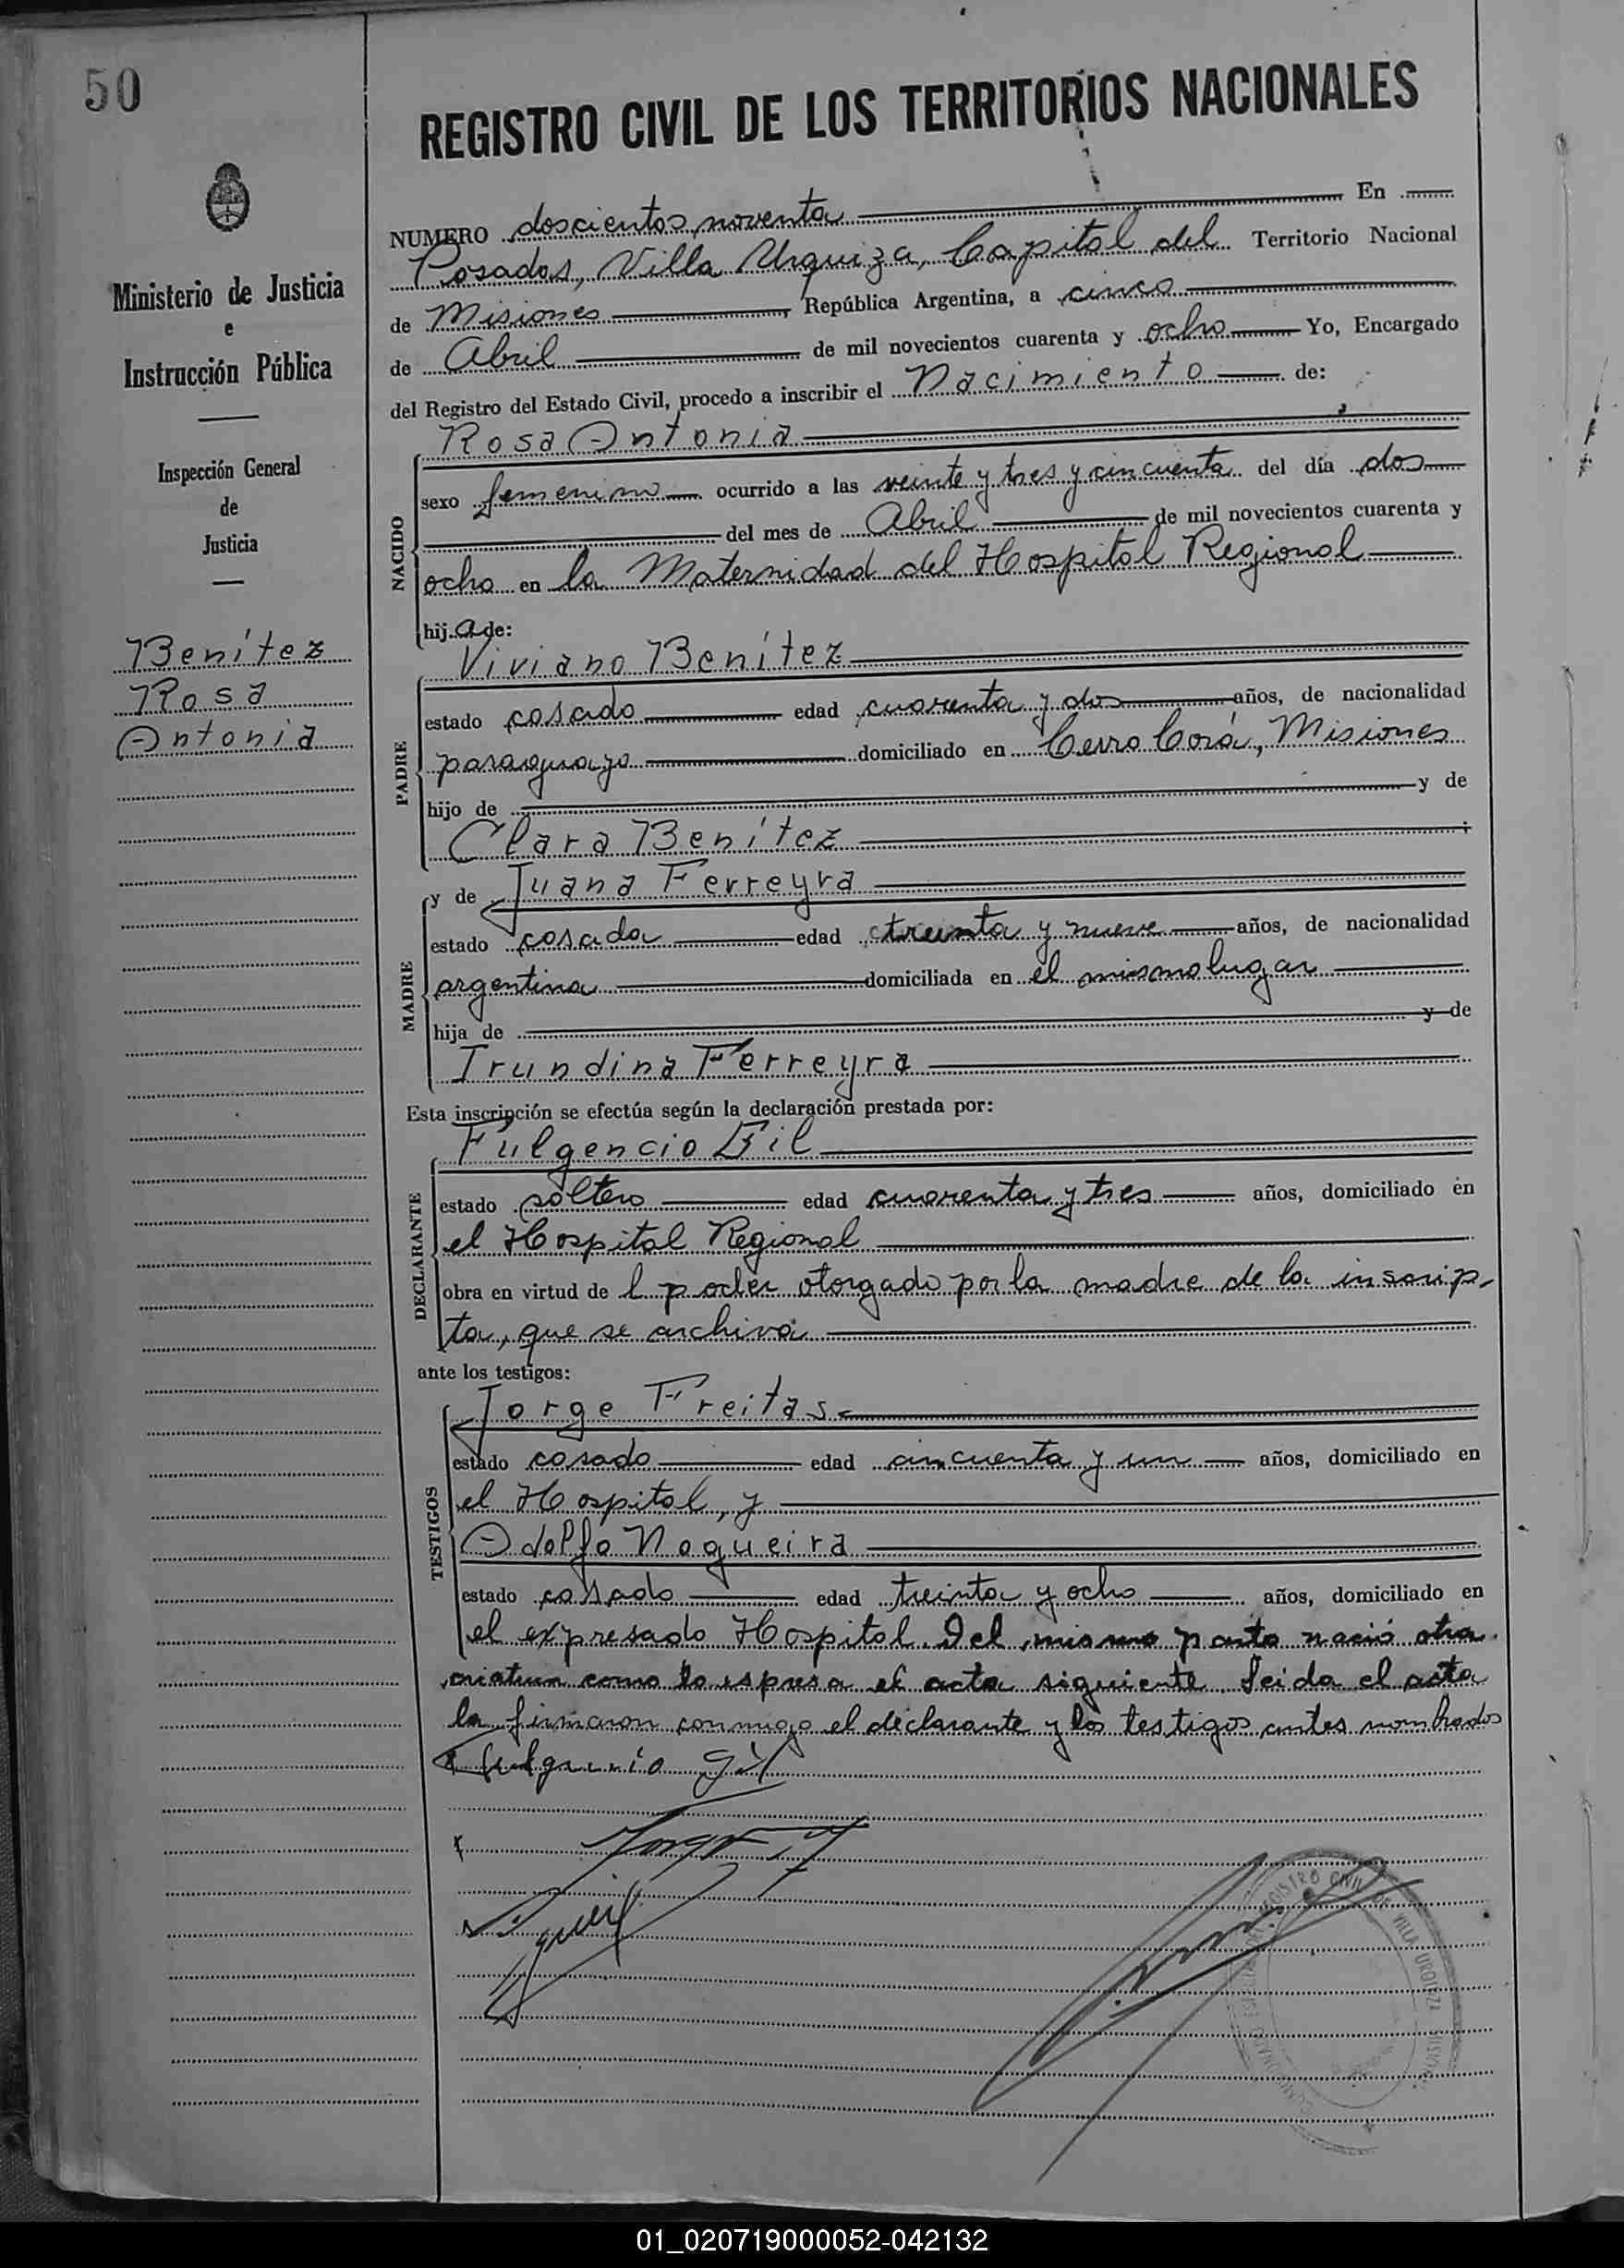 50
REGISTRO CIVIL DE LOS TERRITORIOS NACIONALES
Ministerio de Justicia
e
Instrucción Pública
Inspección General
de
Justicia
Benítez
Rosa
Antonia
NUMERO doscientos noventa En
Posadas, Villa Urquiza, Capital del Territorio Nacional
de Misiones, República Argentina, a cinco
de Abril de mil novecientos cuarenta y ocho Yo, Encargado
del Registro del Estado Civil, procedo a inscribir el Nacimiento de:
Rosa Antonia
NACIDO
sexo femenino ocurrido a las veinte y tres y cincuenta del día dos
del mes de Abril de mil novecientos cuarenta y
ocho en la Maternidad del Hospital Regional
hija de:
Viviano Benítez
PADRE
estado casado edad cuarenta y dos años, de nacionalidad
paraguayo domiciliado en Cerro Corá, Misiones
hijo de y de
Clara Benítez ;
y de Juana Ferreyra
MADRE
estado casada edad treinta y nueve años, de nacionalidad
argentina domiciliada en el mismo lugar
hija de y de
Irundina Ferreyra
Esta inscripción se efectúa según la declaración prestada por:
Fulgencio Gil
DECLARANTE
estado soltero edad cuarenta y tres años, domiciliado en
el Hospital Regional
obra en virtud del poder otorgado por la madre de la inscrip-
ta, que se archiva
ante los testigos:
Jorge Freitas
TESTIGOS
estado casado edad cincuenta y un años, domiciliado en
el Hospital, y
Adolfo Nogueira
estado casado edad treinta y ocho años, domiciliado en
el expresado Hospital. Del mismo parto nació otra
criatura como lo espresa el acta siguiente. Leida el acta
la firmaron conmigo el declarante y los testigos antes nombrados
Fulgencio Gil
REGISTRO CIVIL DE VILLA URQUIZA
01_020719000052-042132